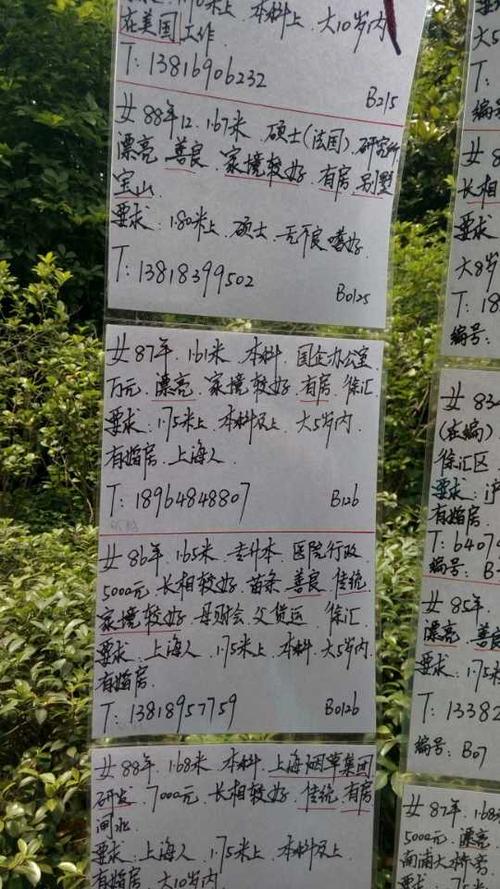 在美国工作
T: 13816906232
B215
女 88年12. 1.67米. 硕士(法国). 研究所
漂亮 善良. 家境较好. 有房. 别墅
宝山
要求: 1.80米上. 硕士. 无不良嗜好.
T: 13818399502
B0125
女 87年. 1.61米. 本科. 国企办公室
万元. 漂亮. 家境较好. 有房. 徐汇
要求: 1.75米上. 本科及上. 大5岁内
有婚房. 上海人.
T: 18964848807
B126
女 86年. 1.65米. 专升本. 医院行政
5000元. 长相较好. 苗条. 善良. 传统.
家境较好. 母财会. 父货运. 徐汇
要求: 上海人. 1.75米上. 本科. 大5岁内.
有婚房.
T: 13818957759
B0126
女 88年. 1.68米. 本科. 上海烟草集团
研发. 7000元. 长相较好. 传统. 有房
闸北
要求: 上海人. 1.75米上. 本科及上
有婚房. 大10岁内
大5
编号
女 8
长相
要求
大8岁
T: 18
编号:
女 834
(在编)
徐汇区
要求: 沪
有婚房
T: 6407
编号: B
女 85年.
漂亮 善良
要求: 1.75米
T: 13382
编号: B07
女 87年. 1.68
5000元. 漂亮